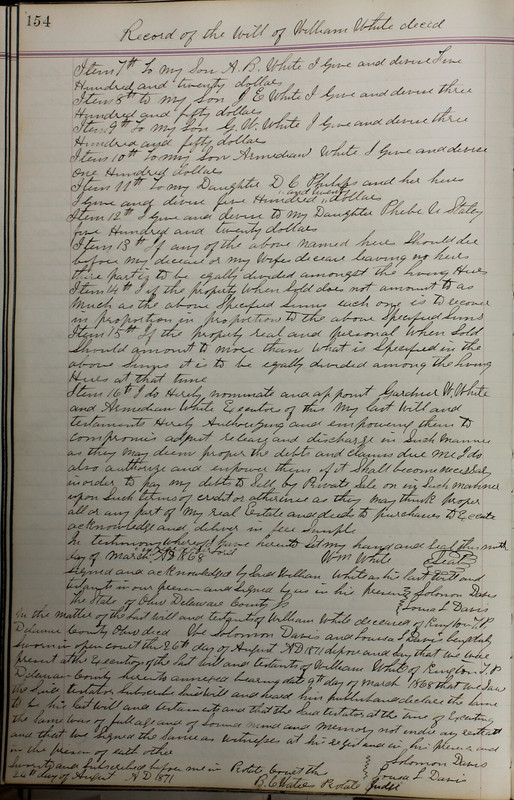 154
Record of the Will of William White decd
Item 7th To my Son A. B. White I Give and devise Five
Hundred and twenty dollars
Item 8th to my Son J E White I Give and devise three
Hundred and fifty dollars
Item 9th To my Son G. W. White I Give and devise three
Hundred and fifty dollars
Item 10th To my Son Armedian White I Give and devise
One Hundred dollars
Item 11th To my Daughter D C Phelps and her heirs
I Give and devise five Hundred and twenty dollars
Item 12th I Give and devise to my Daughter Phebe A Staley
five Hundred and twenty dollars
Item 13th If any of the above named heirs Should die
before my decease or my Wifes decease leaving no heirs
there parts to be egally divided amongst the living Heirs
Item 14th If the property when Sold does not amount to as
Much as the above Specified Sums each one is to receive
in proportion in proportion to the above Specified Sums
Item 15th If the property real and personal When Sold
Should amount to more than What is Specified in the
above Sums it is to be egally divided among the living
Heirs at that time
Item 16th I do Herby nominate and appoint Gardner W. White
and Armedian White Executors of this My last Will and
testaments Herby Authorizing and empowering them to
compromis adjust release and discharge in Such Manner
as they May deem proper the debts and claims due Me I do
also authorize and empower them if it Shall become necessary
in order to pay my debts to Sell by Private Sale or in Such manner
upon Such terms of credit or otherwise as they may think proper
all or any part of My real Estate and deeds to purchasers to Execute
acknowledge and deliver in fee Simple
In testimony Whereof I have hereunto Set my hand and Seal this ninth
day of March AD 1868 Wm White Seal
Signed and acknowledged by Said William White as his last Will and
testament in our presence and Signed by us in his presence Solomon Davis
The State of Ohio Delaware County ss Louisa L Davis
In the matter of the last will and testament of William White deceased of Kingston T.P.
Delaware County Ohio decd We Solomon Davis and Louisa L Davis being duly
Sworn in open court the 26th day of August AD 1871 depose and Say that we were
present at the Execution of the last will and testaments of William White of Kingston T.P
Delaware County hereunto annexed bearing date 9th day of March 1868 that we Saw
the Said testator Subscribe Said Will and heard him publish and declare the Same
to be his last Will and testament and that the Said testator at the time of Executing
the Same was of full age and of Sound mind and Memory not under any restraint
and that we Signed the Same as witnesses at his request and in his presence and
in the presence of each other Solomon Davis
Sworn to and Subscribed before me in Probate Court this Louisa L Davis
26th day of August AD 1871 B. C. Waters Probate Judge